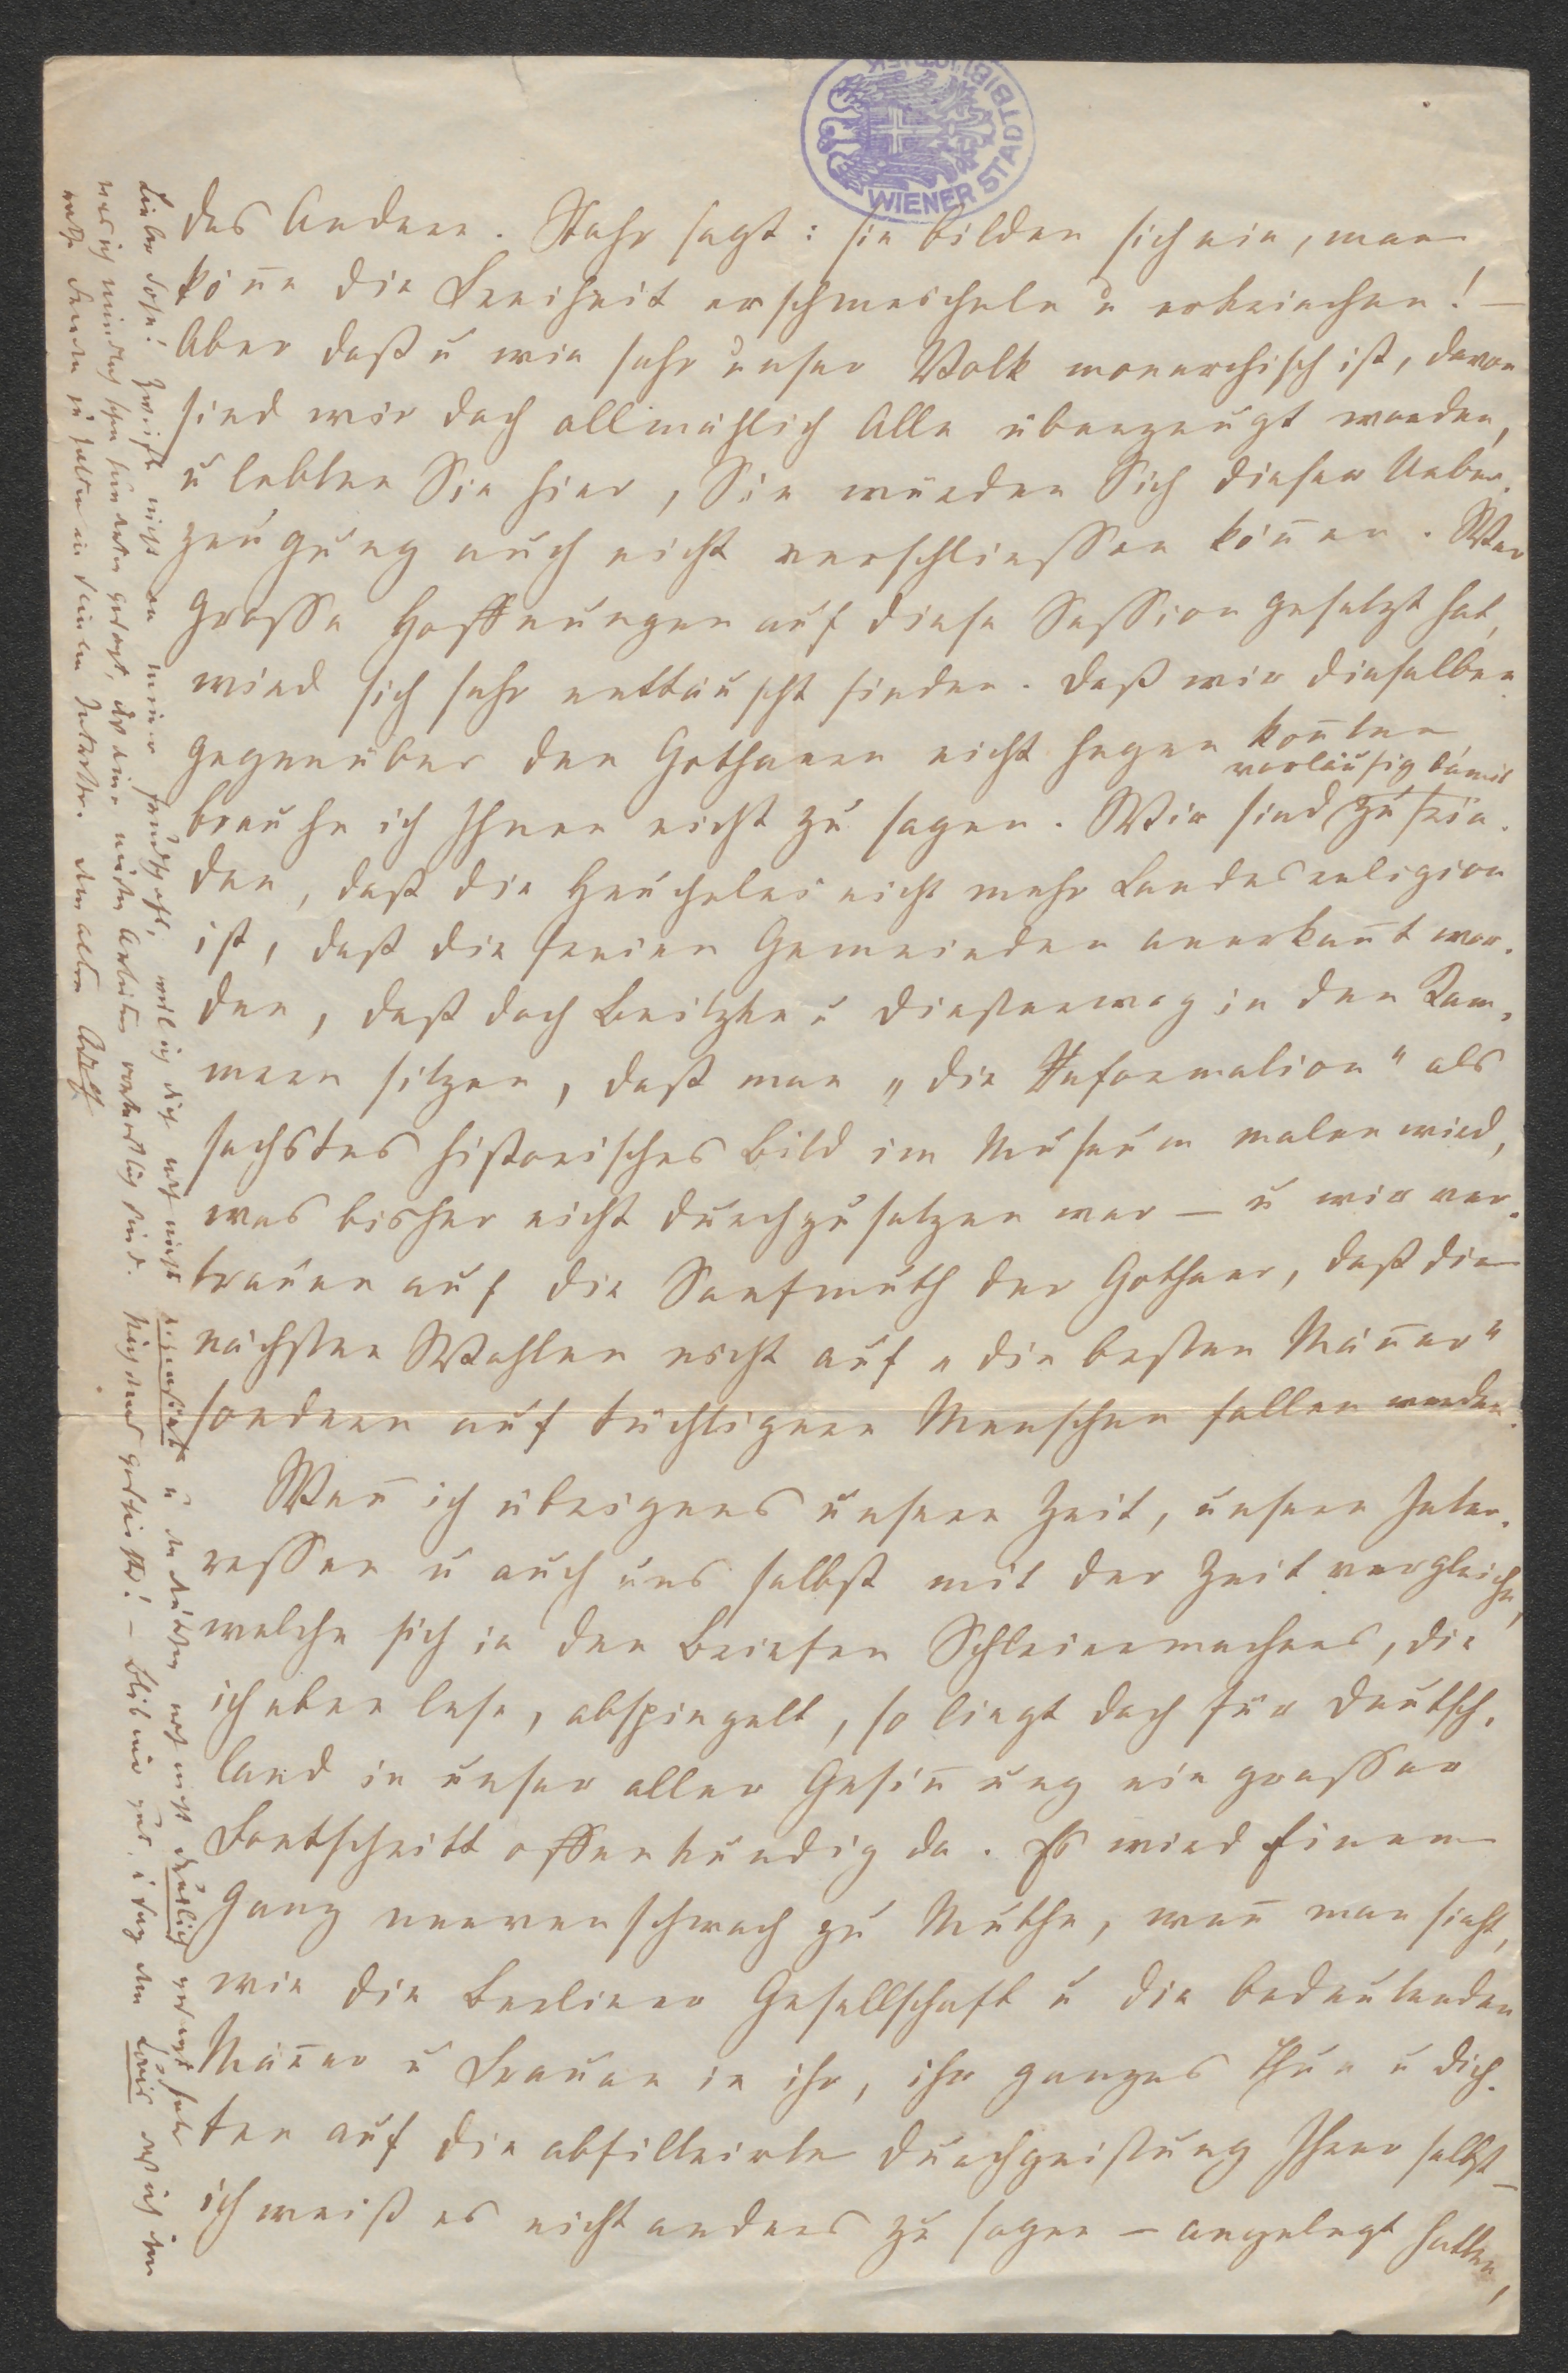 das Andere. Stahr sagt: sie bilden sich ein, man
köne die Freiheit erschmeicheln u erkriechen! —
Aber daß u wie sehr unser Volk monarchisch ist, davon
sind wir doch allmählich Alle überzeugt worden,
u lebten Sie hier, Sie würden Sich dieser Ueber-
zeugung auch nicht verschliessen könen. Wer
grosse Hoffnungen auf diese Session gesetzt hat,
wird sich sehr enttäuscht finden. Daß wir dieselben
gegenüber den Gothaern nicht hegen konten
brauche ich Ihnen nicht zu sagen. Wir sind vorläufig damit zufrie-
den, daß die Heuchelei nicht mehr Landesreligion
ist, daß die freien Gemeinden anerkant wer-
den, daß doch Beitzke u Diesterweg in den Kam-
mern sitzen, daß man „die Reformation" als
sechstes historisches Bild im Museum malen wird,
was bisher nicht durchzusetzen war — u wir ver-
trauen auf die Sanftmuth der Gothaer, daß die
nächsten Wahlen nicht auf „die besten Mäner"
sondern auf tüchtigere Menschen fallen werden.
Wen ich übrigens unsere Zeit, unsere Inter-
ressen u auch uns selbst mit der Zeit vergleiche,
welche sich in den Briefen Schleiermachers, die
ich eben lese, abspiegelt, so liegt doch für Deutsch-
land in unser aller Gesinung ein grosser
Fortschritt offenkundig da. Es wird Einem
ganz nervenschwach zu Muthe, wen man sieht,
wie die Berliner Gesellschaft u die bedeutenden
Mäner u Frauen in ihr, ihr ganzes Thun u Dich-
ten auf die abfiltrirte Durchgeistung Ihrer selbst —
ich weiß es nicht anders zu sagen — angelegt hatten,
Lieber Sohn! Zweifle nicht an meiner Freundschaft, weil ich dich noch nicht recensirt u den Leuten noch nicht deutlich gesagt habe
was ich mündlich schon hundertmal gesagt, daß deine Arbeiten vortrefflich sind. — Bleib mir gut, u sag dem Louis
alten Adolf
WIENER STADTBIBLIOTHEK